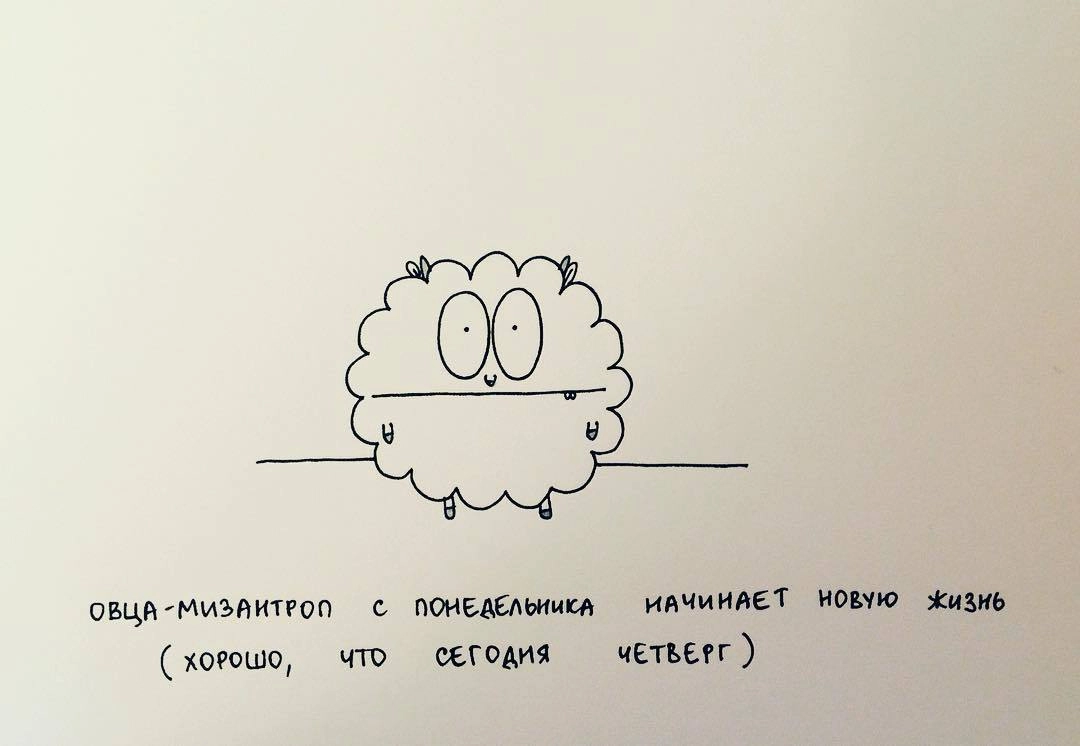 ОВЦА-МИЗАНТРОП С ПОНЕДЕЛЬНИКА НАЧИНАЕТ НОВУЮ ЖИЗНЬ
(ХОРОШО, ЧТО СЕГОДНЯ ЧЕТВЕРГ)